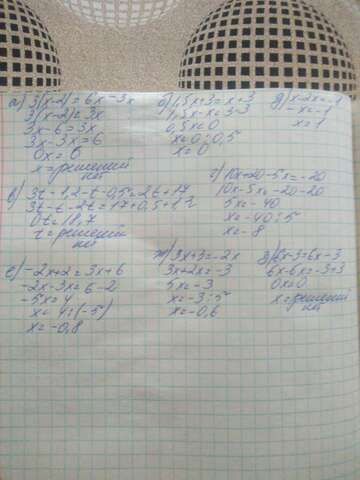 а) 3(x-2)=6x-3x
3(x-2)=3x
3x-6=3x
3x-3x=6
0x=6
x=решений
нй
б) 1,5x+3=x+3
1,5x-x=3-3
0,5x=0
x=0:0,5
x=0
д) x-2x=-1
-x=-1
x=1
в) 3t-1,2-t-0,5=2t+17
3t-t-2t=17+0,5+1,2
0t=18,7
t=решений
нй
г) 10x+20-5x=-20
10x-5x=-20-20
5x=-40
x=-40:5
x=-8
е) -2x+2=3x+6
-2x-3x=6-2
-5x=4
x=4:(-5)
x=-0,8
ж) 3x+3=-2x
3x+2x=-3
5x=-3
x=-3:5
x=-0,6
з) 6x-3=6x-3
6x-6x=-3+3
0x=0
x=решений
нй